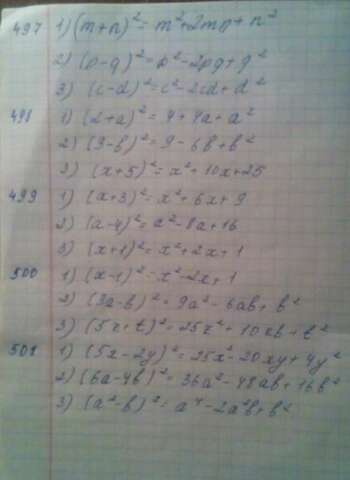 497 1) (m+n)² = m²+2mn+n²
2) (p-q)² = p²-2pq+q²
3) (c-d)² = c²-2cd+d²
498 1) (2+a)² = 4+4a+a²
2) (3-b)² = 9-6b+b²
3) (x+5)² = x²+10x+25
499 1) (x+3)² = x²+6x+9
2) (a-4)² = a²-8a+16
3) (x+1)² = x²+2x+1
500 1) (x-1)² = x²-2x+1
2) (3a-b)² = 9a²-6ab+b²
3) (5x+t)² = 25x²+10xt+t²
501 1) (5x-2y)² = 25x²-20xy+4y²
2) (6a-4b)² = 36a²-48ab+16b²
3) (a²-b)² = a⁴-2a²b+b²